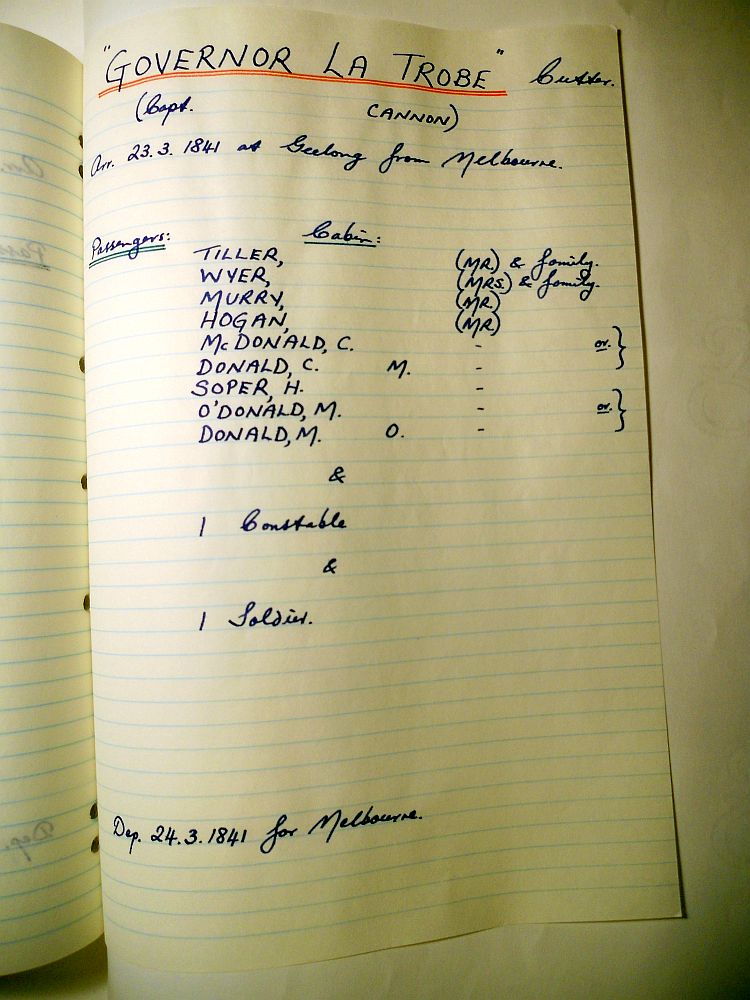 "GOVERNOR LA TROBE" Cutter.
(Capt. CANNON)
Arr. 23.3.1841 at Geelong from Melbourne.
Passengers: Cabin:
TILLER, (MR.) & family.
WYER, (MRS.) & family.
MURRY, (MR.)
HOGAN, (MR)
McDONALD, C. - or. }
DONALD, C. M. -
SOPER, H. -
O'DONALD, M. - or. }
DONALD, M. O. -
&
1 Constable
&
1 Soldier.
Dep. 24.3.1841 for Melbourne.